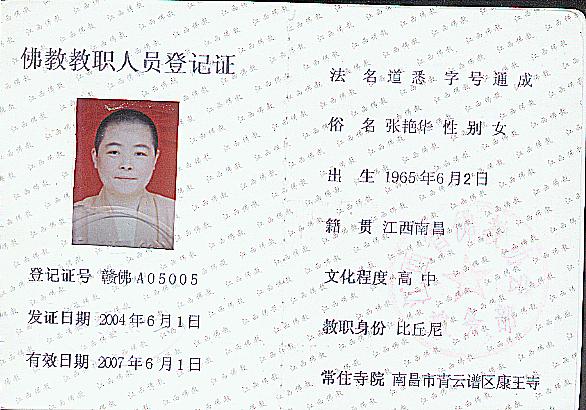 佛教教职人员登记证
登记证号 赣佛A05005
发证日期 2004年6月1日
有效日期 2007年6月1日
法 名 道悉 字号 通成
俗 名 张艳华 性别 女
出 生 1965年6月2日
籍 贯 江西南昌
文化程度 高中
教职身份 比丘尼
常住寺院 南昌市青云谱区康王寺